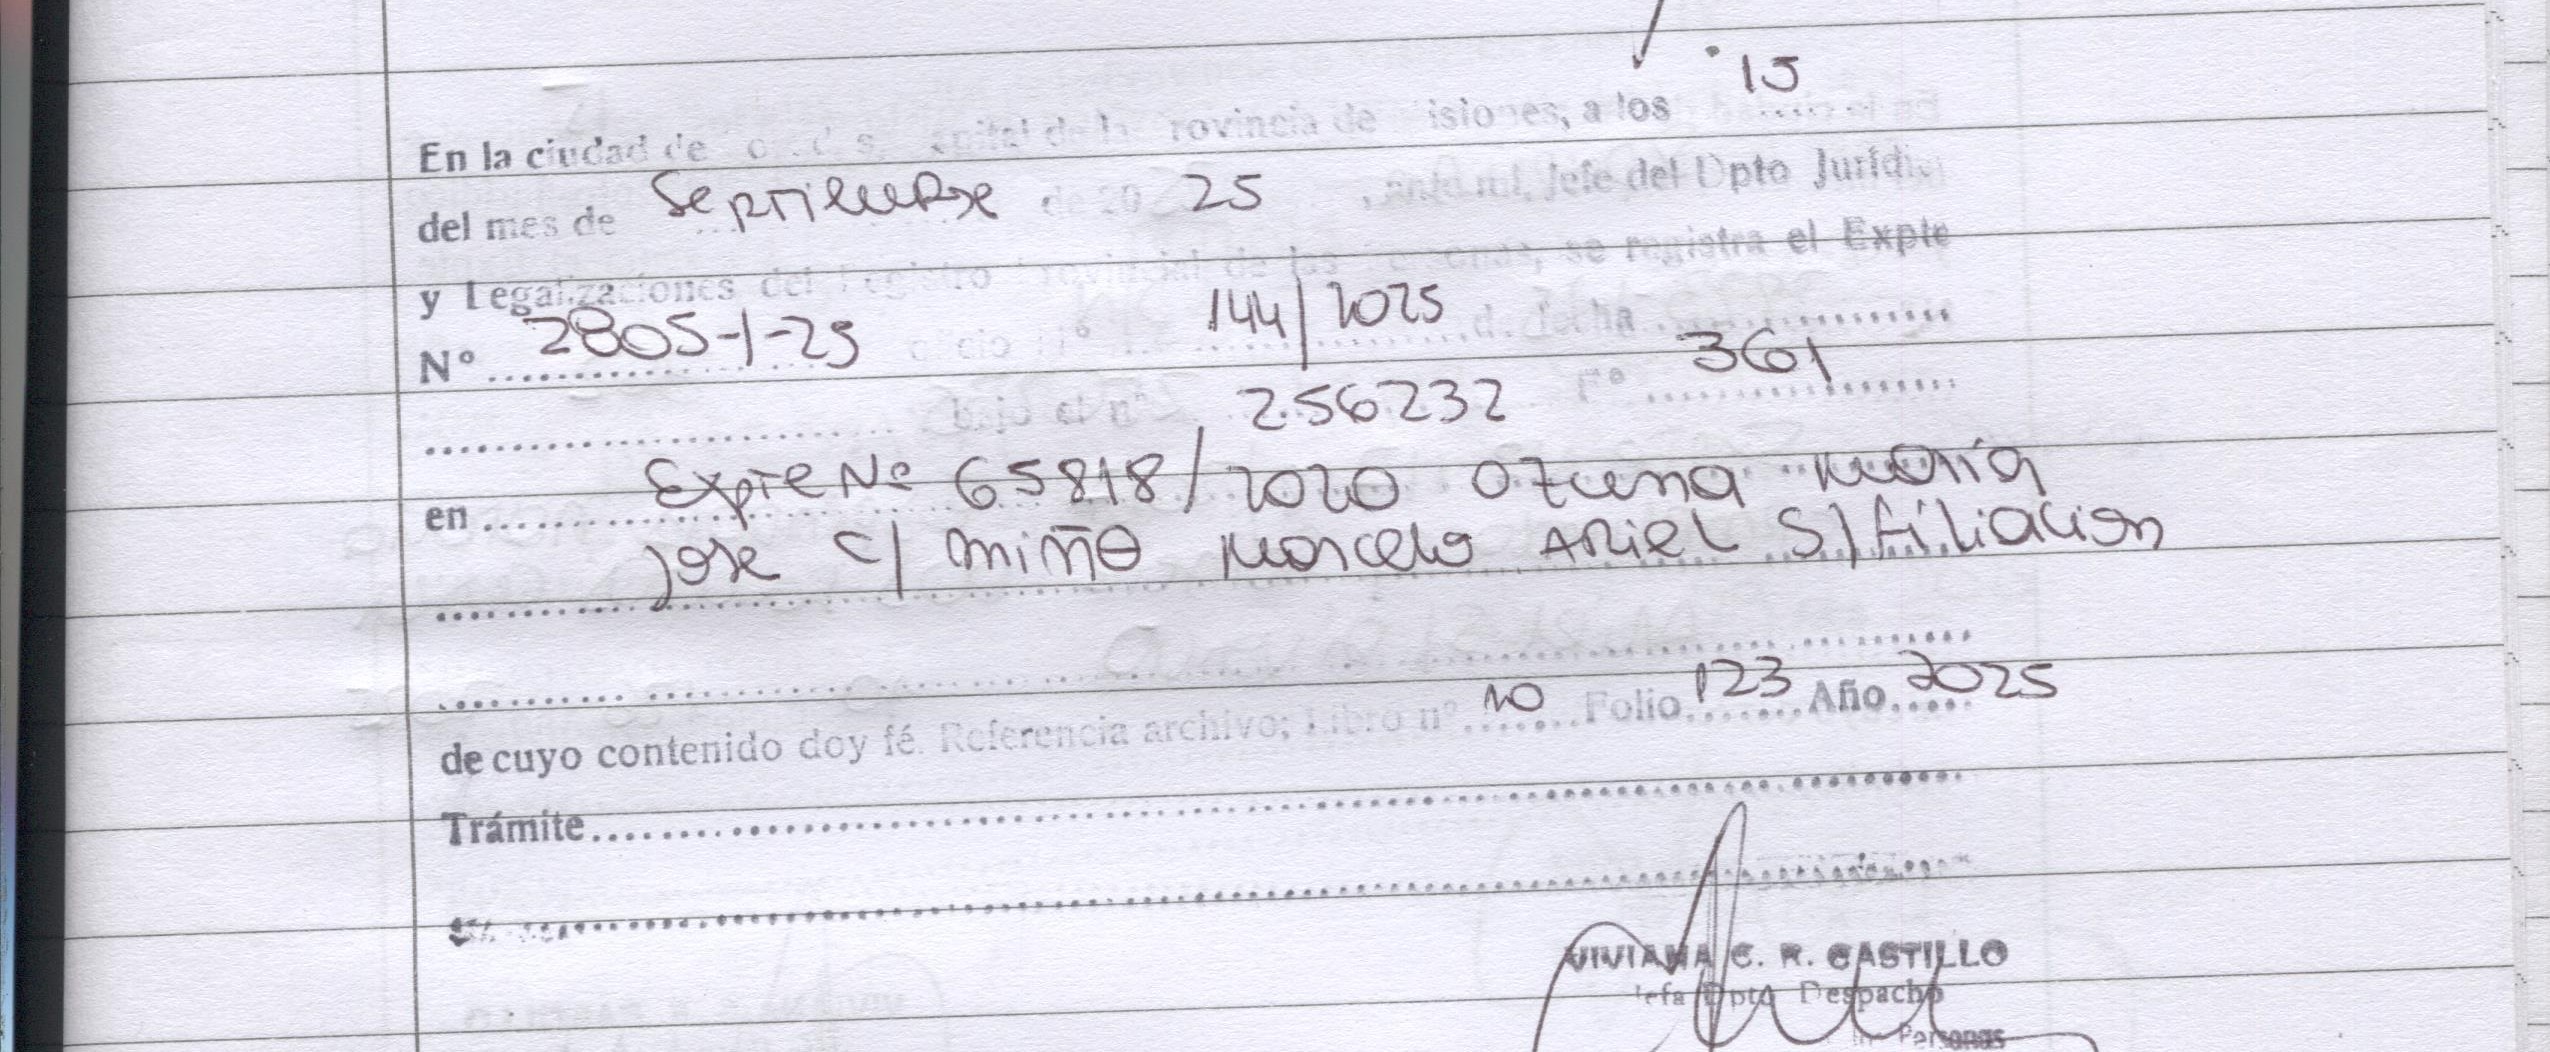 En la ciudad de s, capital de la rovincia de isiones, a los 15
del mes de Septiembre de 20 25, ante mi, Jefe del Dpto Jurídic
y Legalizaciones del Registro Provincial de las Personas, se registra el Expte
N° 2805-1-25 oficio n° 144/2025 de fecha
bajo el n° 256232 F° 361
en Expte Nº 65818/2020 Ozuna María
José c/ Miño Marcelo Ariel S/ filiación
de cuyo contenido doy fé. Referencia archivo; Libro n° 10 Folio 123 Año 2025
Trámite
VIVIANA C. R. CASTILLO
Jefa Dpto Despacho
Personas